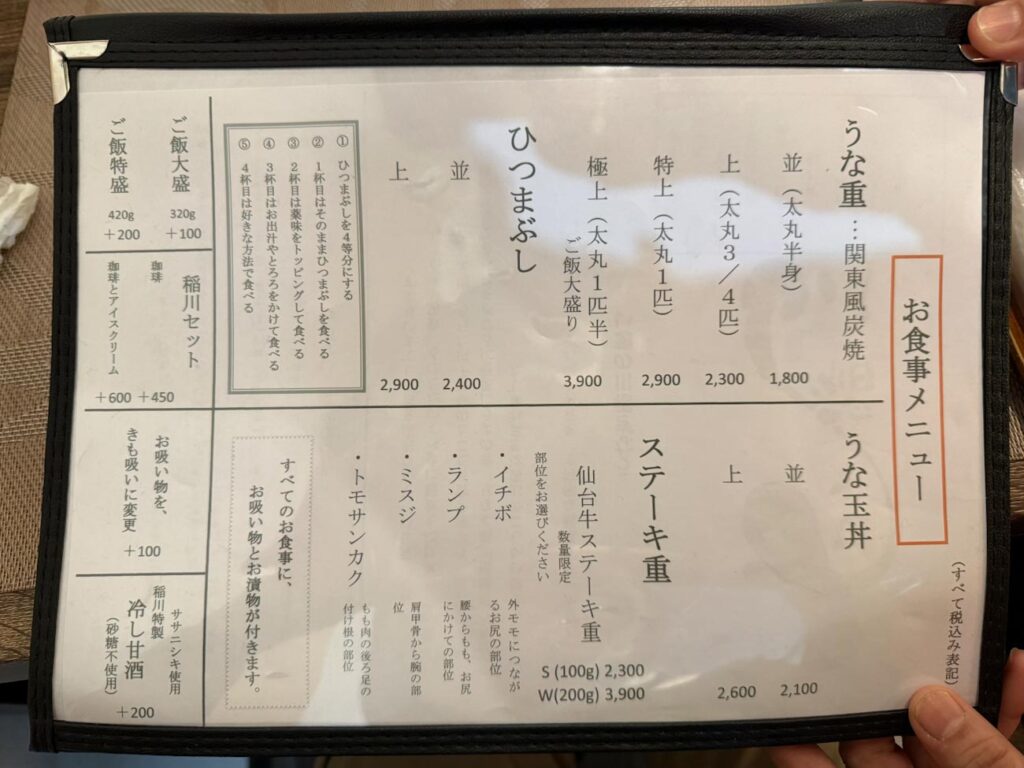 お食事メニュー
(すべて税込み表記)
うな重…関東風炭焼
並(太丸半身) 1,800
上(太丸3/4匹) 2,300
特上(太丸1匹) 2,900
極上(太丸1匹半) 3,900
ご飯大盛り
ひつまぶし
並 2,400
上 2,900
① ひつまぶしを4等分にする
② 1杯目はそのままひつまぶしを食べる
③ 2杯目は薬味をトッピングして食べる
④ 3杯目はお出汁やとろろをかけて食べる
⑤ 4杯目は好きな方法で食べる
うな玉丼
並 2,100
上 2,600
ステーキ重
仙台牛ステーキ重 S (100g) 2,300
数量限定 W(200g) 3,900
部位をお選びください
・イチボ
外モモにつなが
るお尻の部位
・ランプ
腰からもも、お尻
にかけての部位
・ミスジ
肩甲骨から腕の部
位
・トモサンカク
もも肉の後ろ足の
付け根の部位
すべてのお食事に、
お吸い物とお漬物が付きます。
ご飯大盛 320g +100
ご飯特盛 420g +200
稲川セット
珈琲 +450
珈琲とアイスクリーム +600
お吸い物を、
きも吸いに変更 +100
ササニシキ使用
稲川特製
冷し甘酒
(砂糖不使用) +200